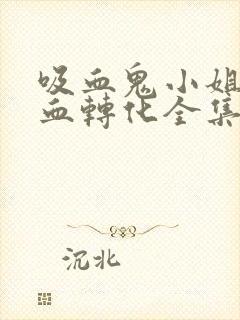 吸血鬼小姐
血轉化全集
沉北